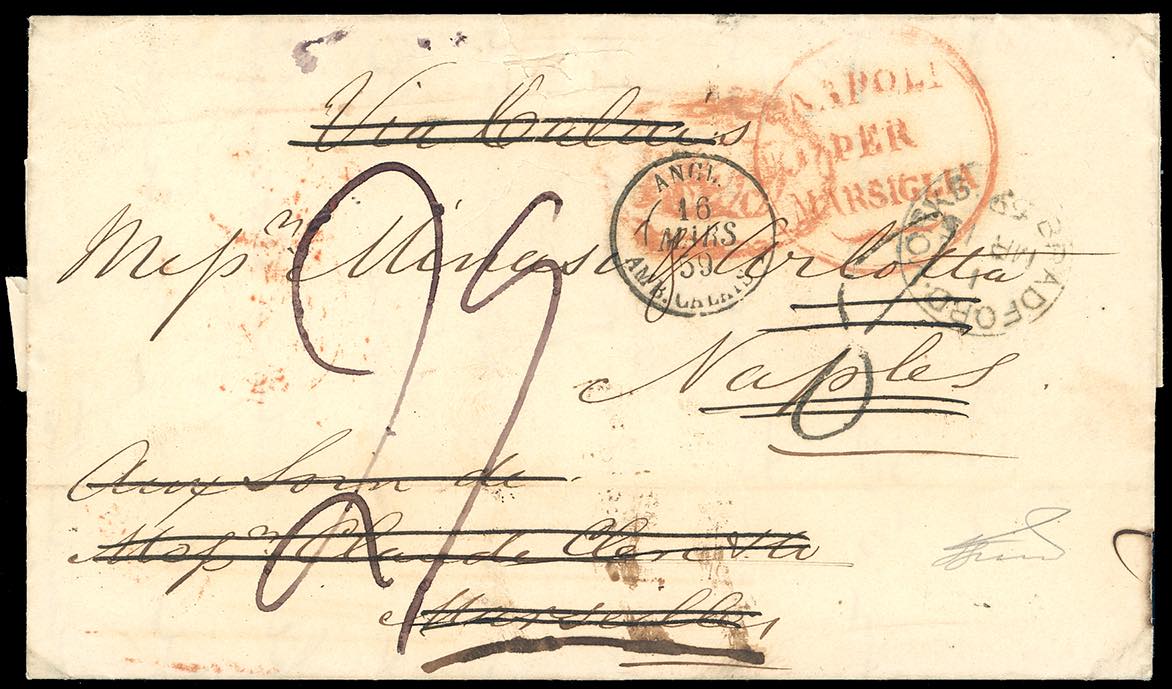 Via Calais
NAPOLI
PER
MARSIGLIA
ANGL.
16
MARS
59
AMB. CALAIS
BRADFORD. YORKS
MR
59
Messrs Minasi & Arlotta
Naples
6
29
Aux Soin de
Messrs Claude Clerc & Co
Marseilles